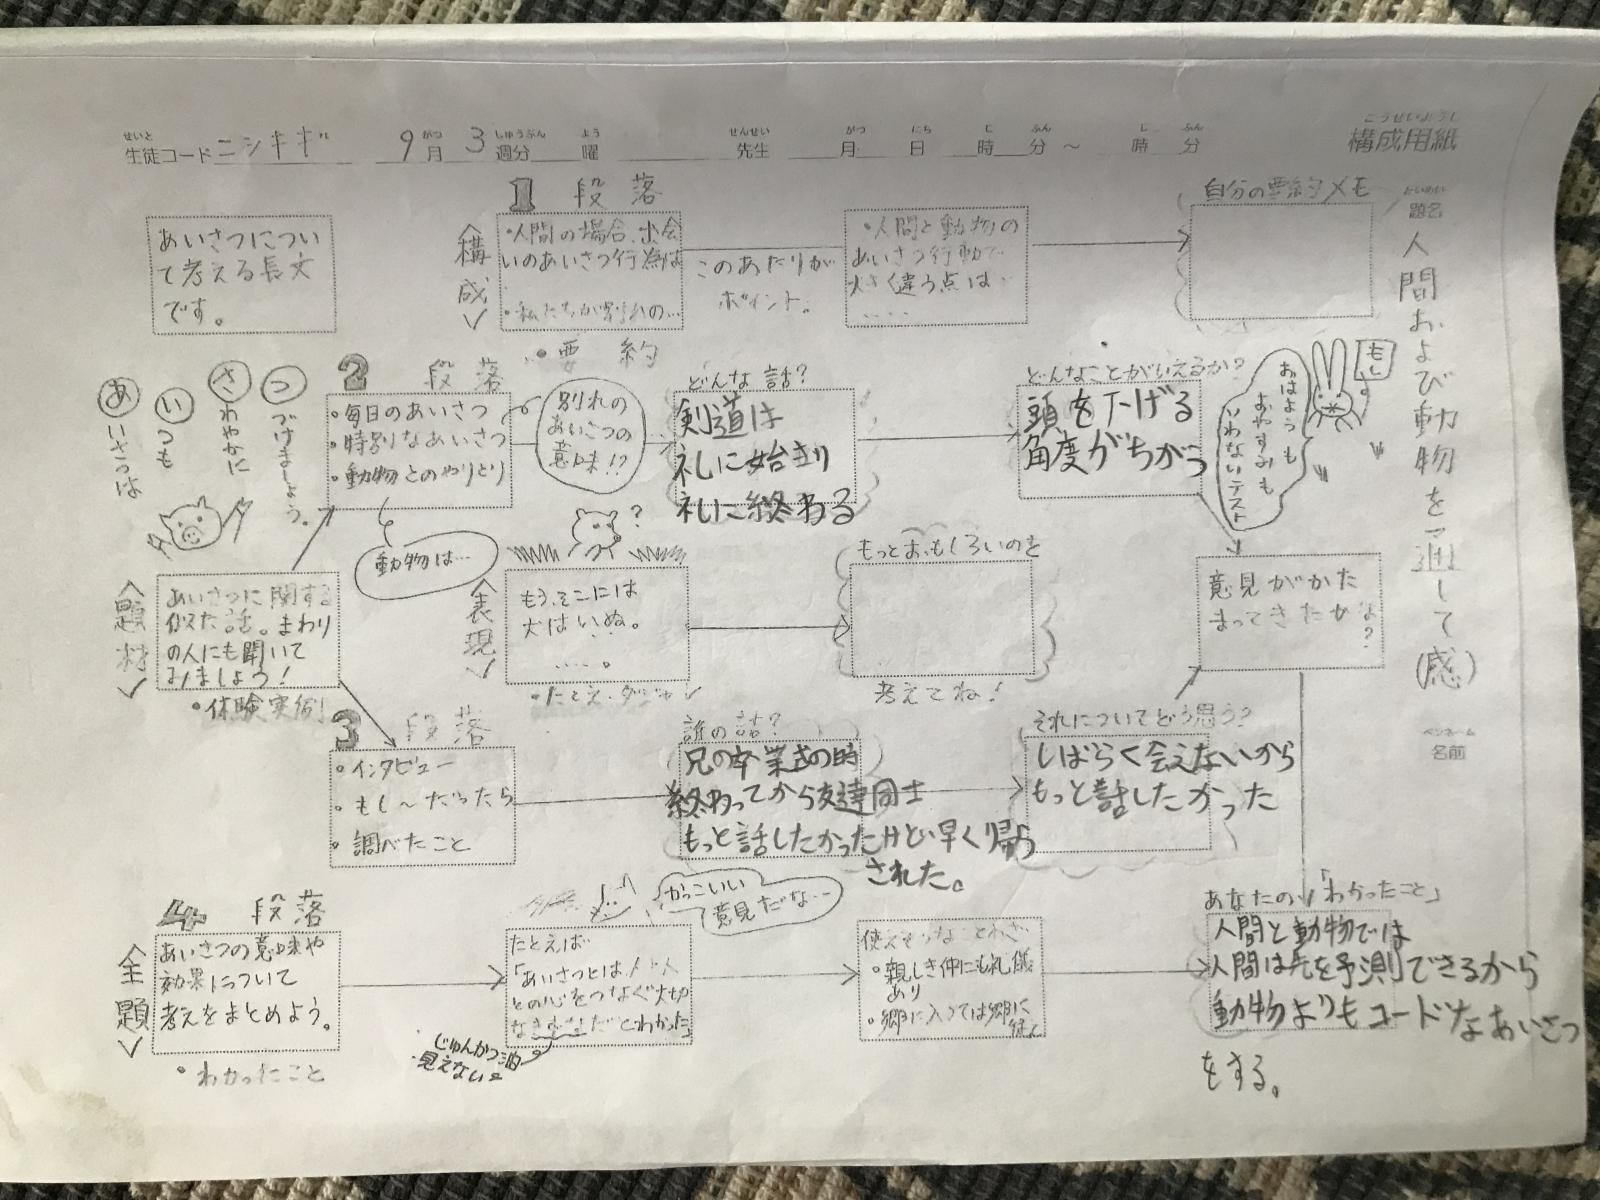 せいと がつ しゅうぶん よう せんせい がつ にち じ ふん じ ふん こうせいようし
生徒コード ニシキギ 9月 3週分 曜 先生 月 日 時 分 ～ 時 分 構成用紙
だいめい
題名
人間および動物を通して(感)
ペンネーム
名前
あいさつについ
て考える長文
です。
1 段落
<構成>
・人間の場合、出会
いのあいさつ行為は
・私たちが別れの…
・要約
このあたりが
ポイント。
・人間と動物の
あいさつ行動で
大きく違う点は
‥‥
自分の要約メモ
あいさつは
いつも
さわやかに
つづけましょう。
2 段落
・毎日のあいさつ
・特別なあいさつ
・動物とのやりとり
別れの
あいさつの
意味!?
動物は…
どんな話?
剣道は
礼に始まり
礼に終わる
どんなことがいえるか?
頭を下げる
角度がちがう
おはようも
おやすみも
いわないテスト
<題材>
あいさつに関する
似た話。まわり
の人にも聞いて
みましょう!
・体験実例
<表現>
?
もう、そこには
犬はいぬ。
‥‥。
・たとえ・ダジャレ
もっとおもしろいのを
考えてね!
意見がかた
まってきたかな
?
3 段落
・インタビュー
・もし～だったら
・調べたこと
誰の話?
兄の卒業式の時
終わってから友達同士
もっと話したかったけど早く帰ら
された。
それについてどう思う?
しばらく会えないから
もっと話したかった
4 段落
<主題>
あいさつの意味や
効果について
考えをまとめよう。
・わかったこと
かっこいい
意見だな…
たとえば
「あいさつとは、人と人
との心をつなぐ大切
とわかった」
じゅんかつ油
見えない
・親しき仲にも礼儀
あり
・郷に入っては郷に
従え
あなたの「わかったこと」
人間と動物では
人間は先を予測できるから
動物よりもコードなあいさつ
をする。